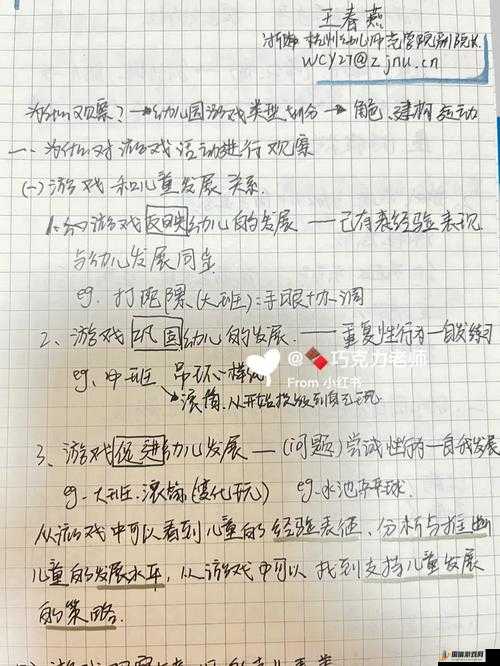 王春燕
浙师 杭州幼儿师范学院副院长
WCY27@zjnu.cn
为什么观察？→幼儿园游戏类型划分→角色、建构、运动
一、为什么对游戏活动进行观察
(一)游戏和儿童发展关系.
1、幼游戏反映幼儿的发展 —— 已有表经验表现
与幼儿发展同步
eg. 打陀螺(大班)：手眼协调
2、游戏巩固幼儿的发展. —— 重复性行为—自发练习
eg、中班 吊环、
滚筒.从开始
3、游戏促进幼儿发展 —(问题)尝试性行为—自我发展
eg. 大班.滚筒(变化玩) eg.水池
从游戏中可以看到儿童的经验表征、分析与推断
儿童的发展水平，从游戏中可以找到支持儿童发展
的策略.
@🍫巧克力老师
From 小红书